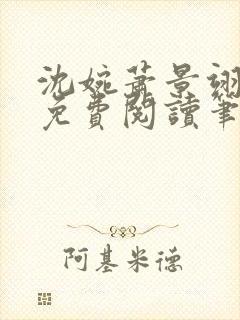 沈婉蕭景翊
免費閱讀筆
阿基米德